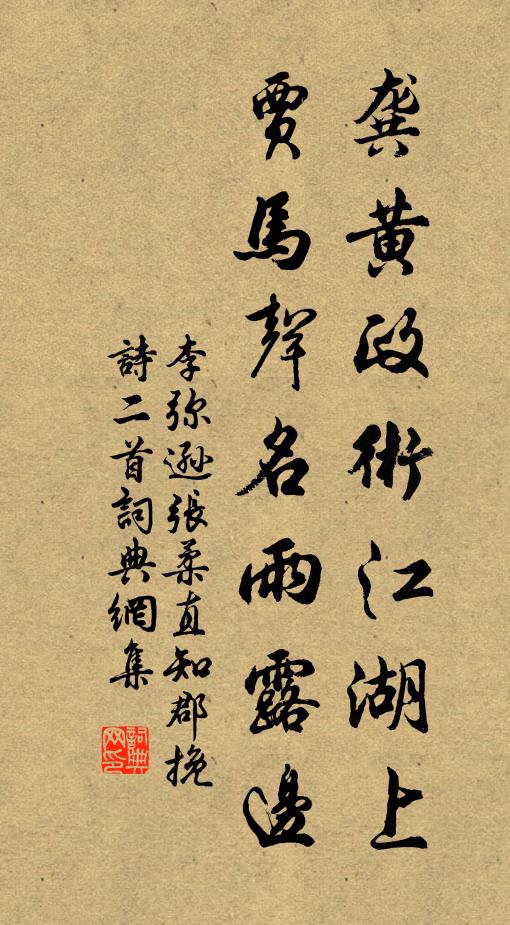 龔黄政術江湖上
賈馬聲名雨露邊
李弥遜張柔直知郡挽
詩二首詞典網集
詞典网印